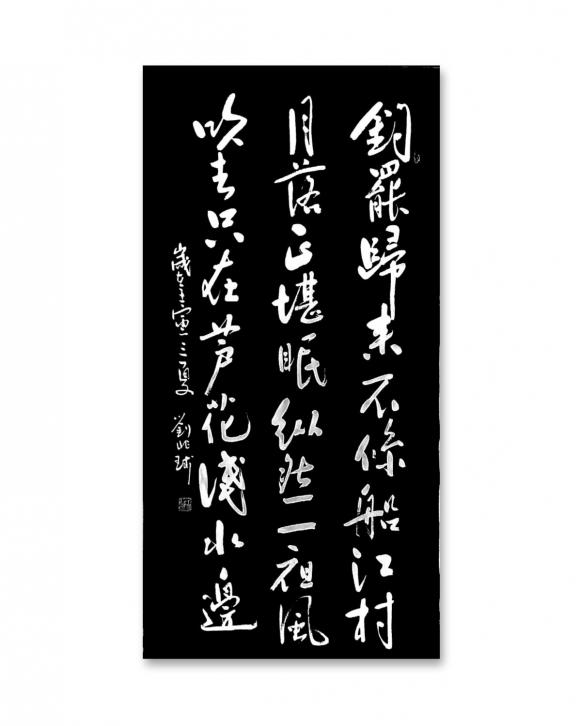 釣罷歸来不係船江村
月落正堪眠縱然一夜風
吹去只在芦花淺水邊
歲在壬寅之夏 劉